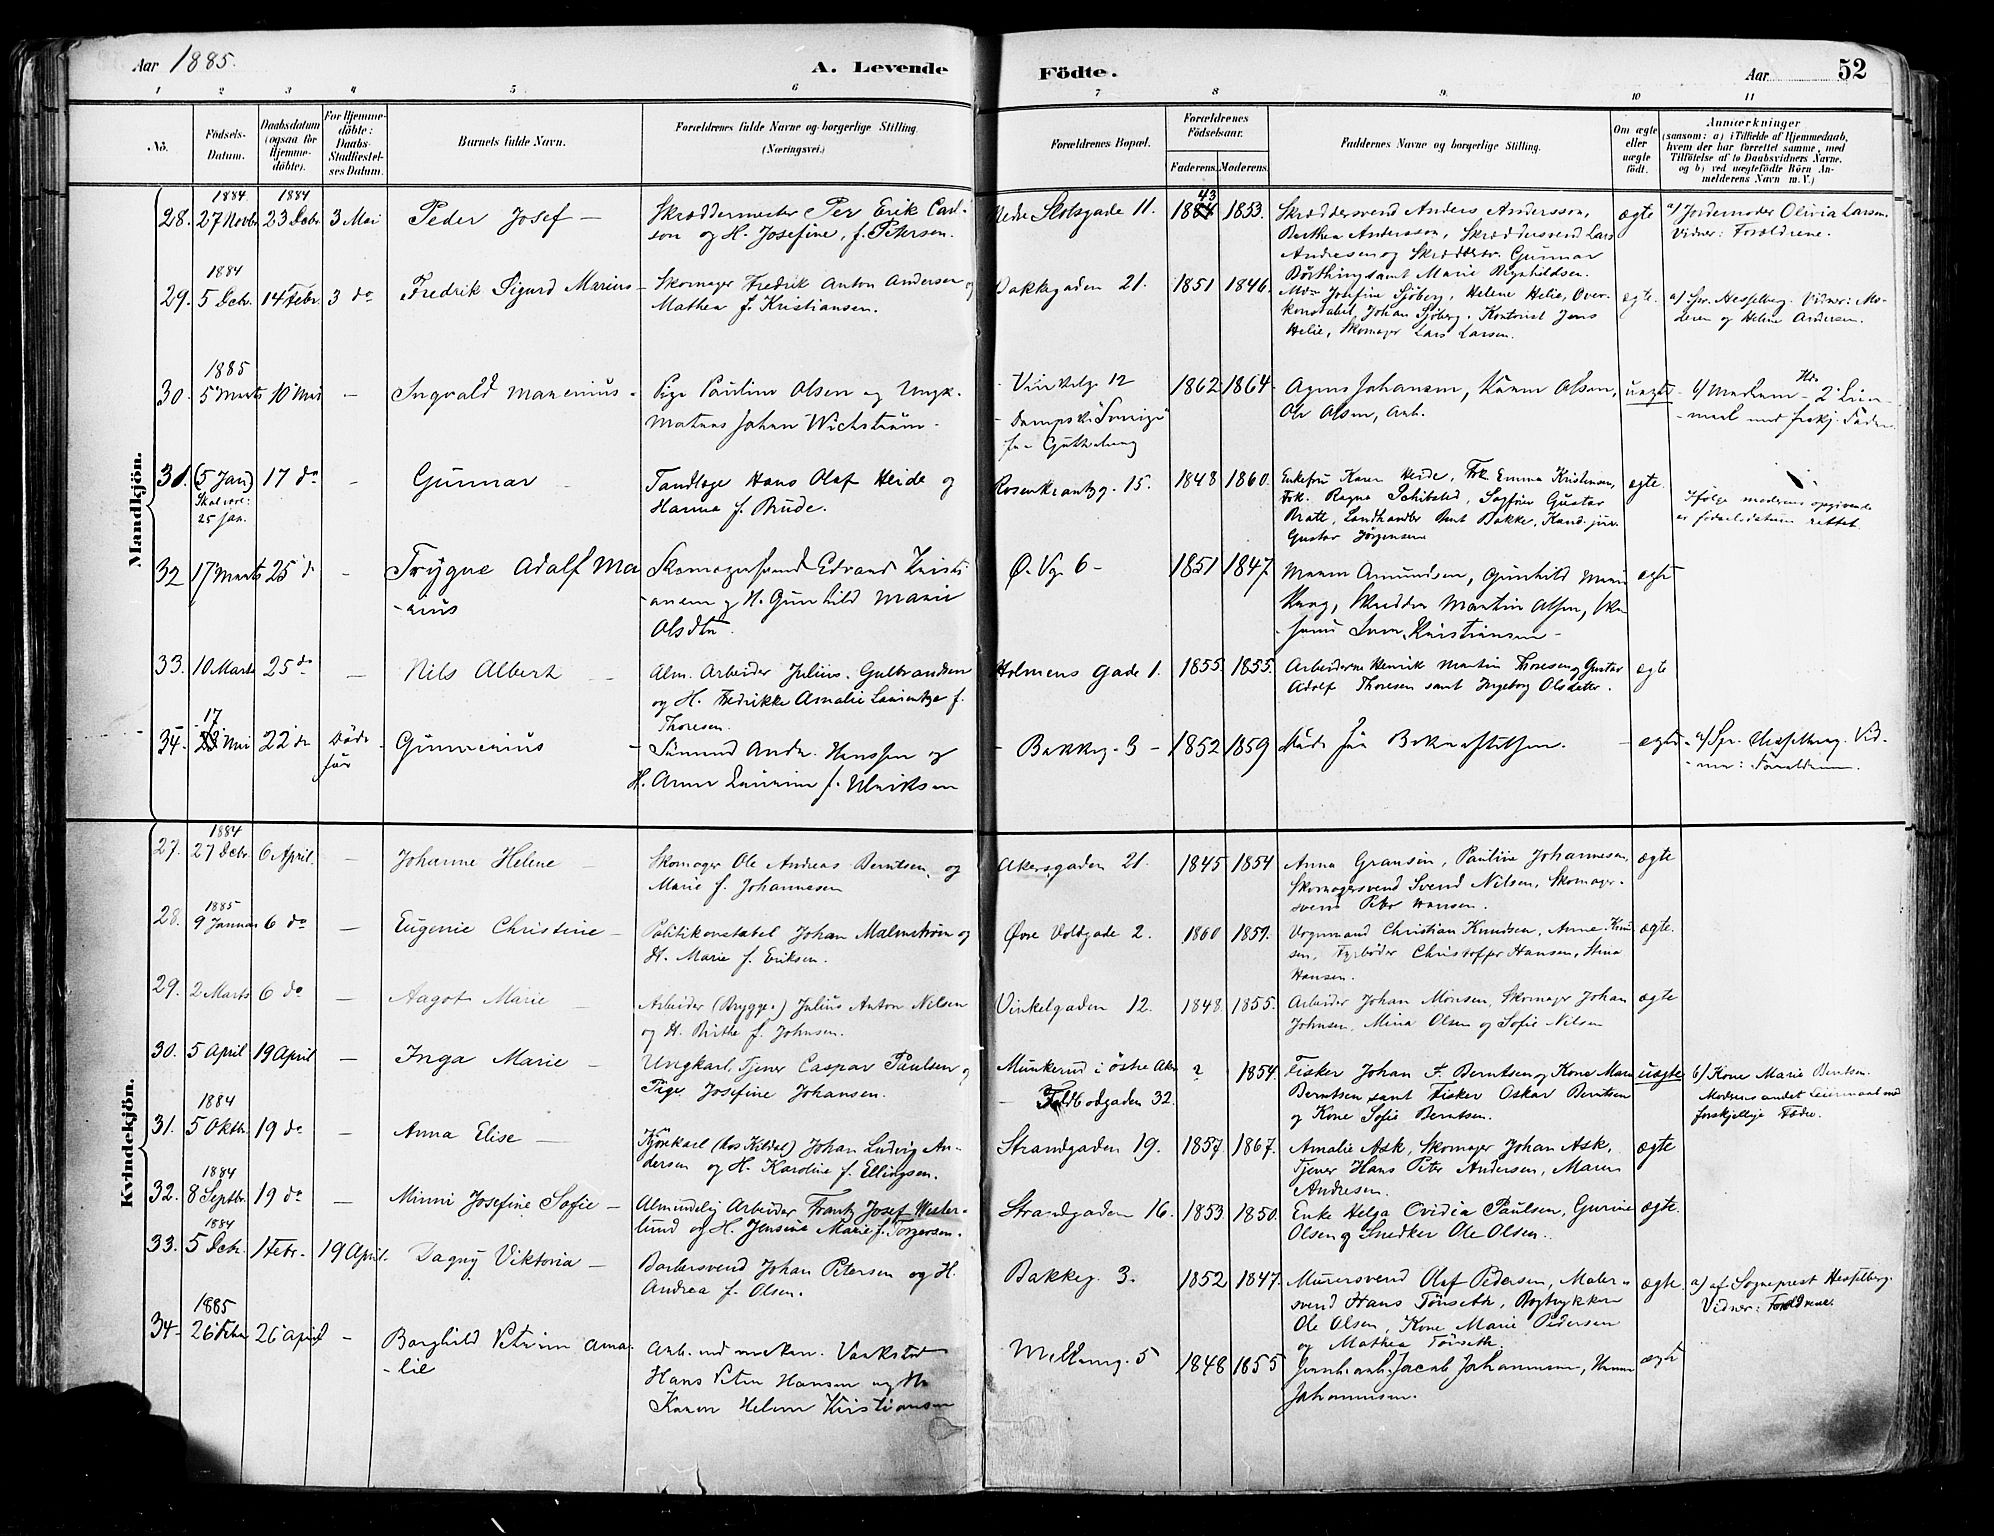 Aar 1885.
A. Levende
Födte.
Aar
52
1 2 3 4 5 6 7 8 9 10 11
No.
Födsels-Datum.
Daabsdatum (ogsaa for Hjemme-döbte).
For Hjemme-döbte: Daabs-Stadfæstel-ses Datum.
Barnets fulde Navn.
Forældrenes fulde Navne og borgerlige Stilling. (Næringsvei.)
Forældrenes Bopæl.
Forældrenes Födselsaar.
Faderens. Moderens.
Faddernes Navne og borgerlige Stilling.
Om ægte eller uægte födt.
Anmærkninger
(saasom: a) i Tilfælde af Hjemmedaab,
hvem der har forrettet samme, med
Tilföielse af to Daabsvidners Navne,
og b) ved uægtefödte Börn An-
melderens Navn m. V.)
Mandkjön.
1884 1884
28. 27 Novbr. 23 Decbr. 3 Mai Peder Josef — Skræddermester Per Erik Carl- Nedre Slotsgade 11. 43 1853. Skræddersvend Anders Andersson, ægte a) Jordemoder Olivia Larsen.
son og H. Josefine, f. Petersen. Berthea Andersson, Skræddersvend Lars Vidner: Forældrene.
Andresen og Gunnar
1884
29. 5 Decbr. 14 Febr. 3 do Fredrik Sigurd Marius — Skomager Fredrik Anton Andersen og Bakkegaden 21. 1851 1846. samt Marie
Mathea f. Kristiansen. Josefine Sjöberg, Helene Helie, Over- ægte. a) Spr. Hesselberg. Vidner: Mo-
konstabel Johan Sjöberg. Kontorist Jens deren og Helene Andersen.
Helie, Skomager Lars Larsen.
1885
30. 5 Marts 10 Mai — Ingvald Marenius - Pige Pauline Olsen og Ungk. - Vinkelg. 12 1862 1864 Johansen, Olsen, uægte
Matros Johan Wichstrøm. Ole Olsen, Arb.
31. (5 Jan) 17 do — Gunnar — Tandlæge Hans Olaf Heide og Rosenkrantzg. 15. 1848 1860. Enkefru Karen Heide, Frk. Emma Kristensen, ægte.
Skal være: Hanna f. Brude. Frk. Ragna Schibsted, Gustav Ifølge moderens opgivende
25 Jan. Bratt, Landhandler Bernt Bakke, Kand. jur. er fødselsdatum rettet.
Gustav Jörgensen
32 17 Marts 25 d — Trygve Adolf Ma Skomagersvend Edvard Kristi Ø. Vg. 6 - 1851 1847. Maren Amundsen, Gunhild ægte
-rius -ansen og H. Gunhild Marie Skrædder Martin Olsen,
Olsdtr. Kristiansen -
33. 10 Marts 25 do — Nils Albert — Alm. Arbeider Julius Gulbrandsen Holmens Gade 1. 1855 1855. Arbeiderne Henrik Martin Thoresen og Gustav ægte
og H. Fredrikke Amalie f. Adolf Thoresen samt Ingeborg Olsdatter.
Thoresen.
17
34. Mai 22 do Døde før Gunnerius - Andr. Hanssen og - Bakkeg. 3 - 1852 1859 Døde før Bekræftelsen. ægte a) Spr. Hesselberg. Vid-
H. Anne f. Ulriksen -ner: Forældrene.
Kvindekjön.
1884
27. 27 Decbr. 6 April. — Johanne Helene — Skomager Ole Andreas Berntsen, og Akersgaden 21. 1845 1854 Anna Gransin, Pauline Johannesen, ægte
Marie f. Johannesen Skomagersvend Svend Nilsen, Skomager-
svend Peter Hansen.
1885
28. 9 Januar 6 do — Eugenie Christine — Politikonstabel Johan Malmstrøm og Øvre Voldgade 2. 1860 1859. Vognmand Christian Knudsen, Anne Knud ægte.
H. Marie f. Eriksen. sen, Fyrbøder Christoffer Hansen, Stina
Hansen.
29. 2 Marts 6 do — Aagot Marie — Arbeider (Brygge.) Julius Anton Nilsen Vinkelgaden 12. 1848. 1855. Arbeider Johan Monsen, Skomager Johan ægte
og H. Birthe f. Johnsen. Johnsen, Mina Olsen og Sofie Nilsen
30. 5 April 19 April — Inga Marie — Ungkarl, Tjener Caspar Paulsen og Munkerud i østre Aker ? 1854. Fisker Johan F. Berntsen og Kone Maren uægte b) Kone Marie Berntsen
Pige Josefine Johansen. - odgaden 32. Berntsen samt Fisker Oskar Berntsen Moderens andet Leiermaal med
og Kone Sofie Berntsen. forskjellige Fædre.
1884
31. 5 Oktbr. 19 do — Anna Elise — Kjørekarl (hos Kildal) Johan Ludvig An- Strandgaden 19. 1857. 1867. Amalie Ask, Skomager Johan Ask, ægte
dersen og H. Karoline f. Ellingsen. Tjener Hans Peter Andersen, Maren
Andresen.
1884
32. 8 Septbr. 19 do — Minni Josefine Sofie — Almindelig Arbeider Frantz Josef Wester- Strandgaden 16. 1853. 1850. Enke Helga Ovidia Paulsen, Gurine ægte.
lund og H. Jensine Marie f. Torgersen. Olsen og Snedker Ole Olsen.
1884
33. 5 Decbr. 1 Febr. 19 April. Dagny Viktoria — Barbersvend Johan Petersen og H. Bakkeg. 3. 1852 1847. Murersvend Olaf Pedersen, Maler- ægte. a) af Sogneprest Hesselberg.
Andrea f. Olsen. svend Hans Tönseth, Bogtrykker Vidner: Forældrene.
Ole Olsen, Kone Marie Pedersen
og Mathea Tönseth.
1885
34- 26 Febr 26 April — Borghild Petrine Ama- Arb. ved mekan. Værksted - 5 1848 1855 Jacob Johannesen, ægte
-lie Hans Peter Hansen og H. Johannesen.
Karen Helene Kristiansen